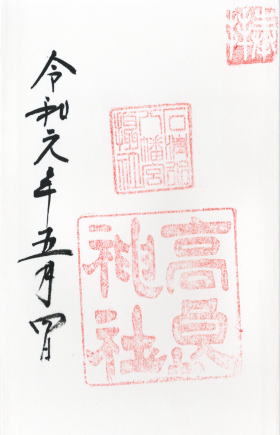 奉拝
石清水
八幡宮
攝社
高良
神社
令和元年五月四日